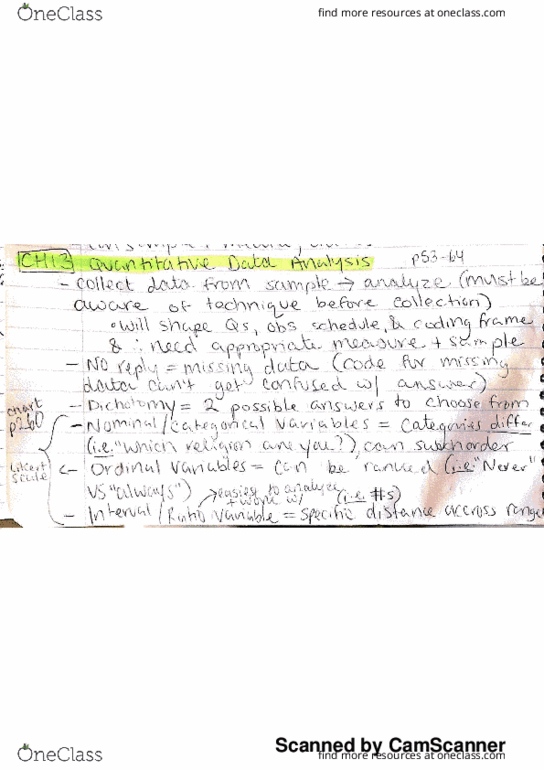 OneClass
find more resources at oneclass.com
CH13 Quantitative Data Analysis p53-64
- collect data from sample → analyze (must be
aware of technique before collection)
• will shape Qs, obs schedule, & coding frame
& ∴ need appropriate measure + sample
- No reply = missing data (code for missing
data can't get confused w/ answer)
- Dichotomy = 2 possible answers to choose from
chart
p260
- Nominal/categorical variables = categories differ
(i.e. "which religion are you?), can
Likert
scale
- Ordinal variables = can be ranked (i.e. "Never"
vs "always") → easier to analyze
+ work w/ (i.e. #s)
- Interval/Ratio variable = specific distance accross range
Scanned by CamScanner
OneClass
find more resources at oneclass.com